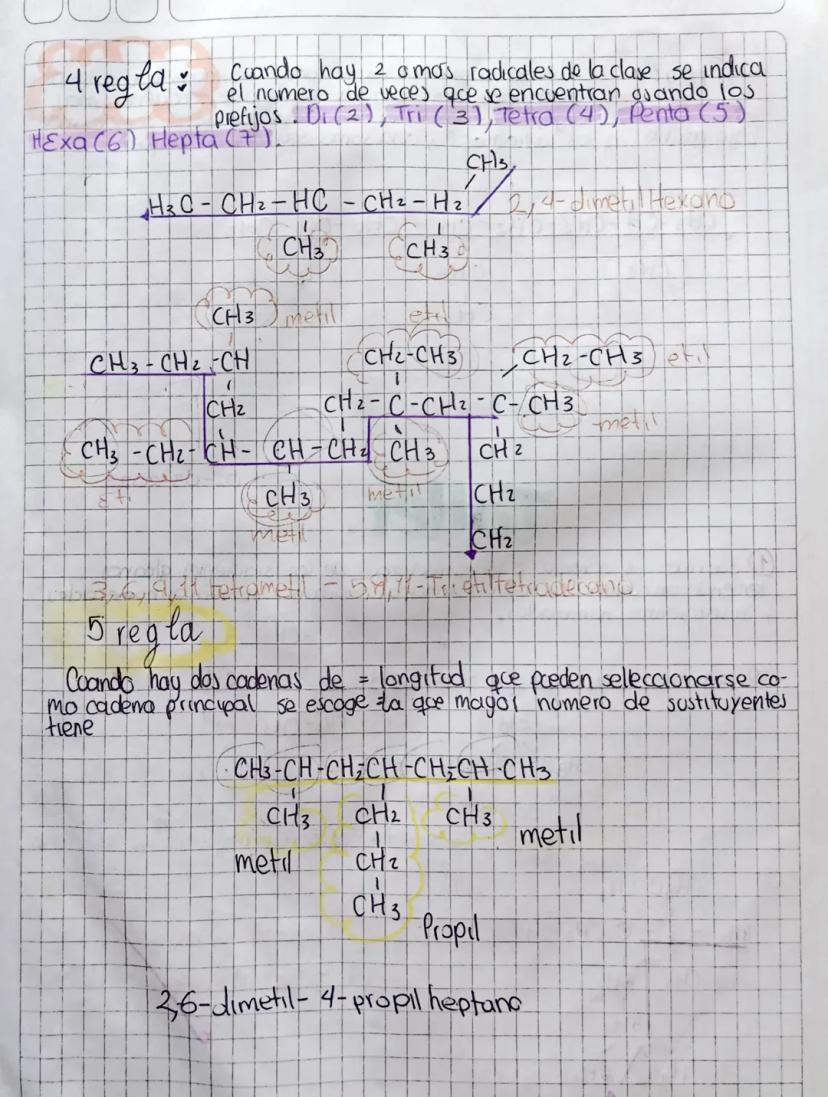 4 regla: Cuando hay 2 o mas radicales de la clase se indica
el numero de veces que se encuentran usando los
prefijos. Di(2), Tri(3), Tetra(4), Penta(5)
HExa(6) Hepta(7).
CH3
H3C - CH2 - HC - CH2 - H2
2,4-dimetil Hexano
CH3 CH3
CH3 metil etil
CH3 - CH2 - CH CH2-CH3 CH2-CH3 etil
CH2 CH2 - C - CH2 - C - CH3
metil
CH3 - CH2 - CH - CH - CH2 CH3 CH2
CH3 metil CH2
metil
CH2
3,6,9,11 tetrametil - 5,9,11-Tri etiltetradecano
5 regla
Cuando hay dos cadenas de = longitud que pueden seleccionarse co-
mo cadena principal se escoge la que mayor numero de sustituyentes
tiene
CH3-CH-CH2-CH-CH2-CH-CH3
CH3 CH2 CH3 metil
metil CH2
CH3 Propil
2,6-dimetil-4-propil heptano